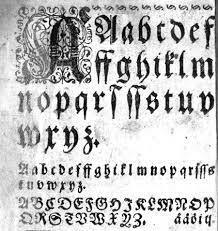 A Aabcdef
ffghiklm
nopqrſſſstuv
wxyz.
Aabcdeffghiklmnopqrſſſs
tuvwxyz.
ABCDEFGHIJKLMNOP
QRSTUVWXYZ.